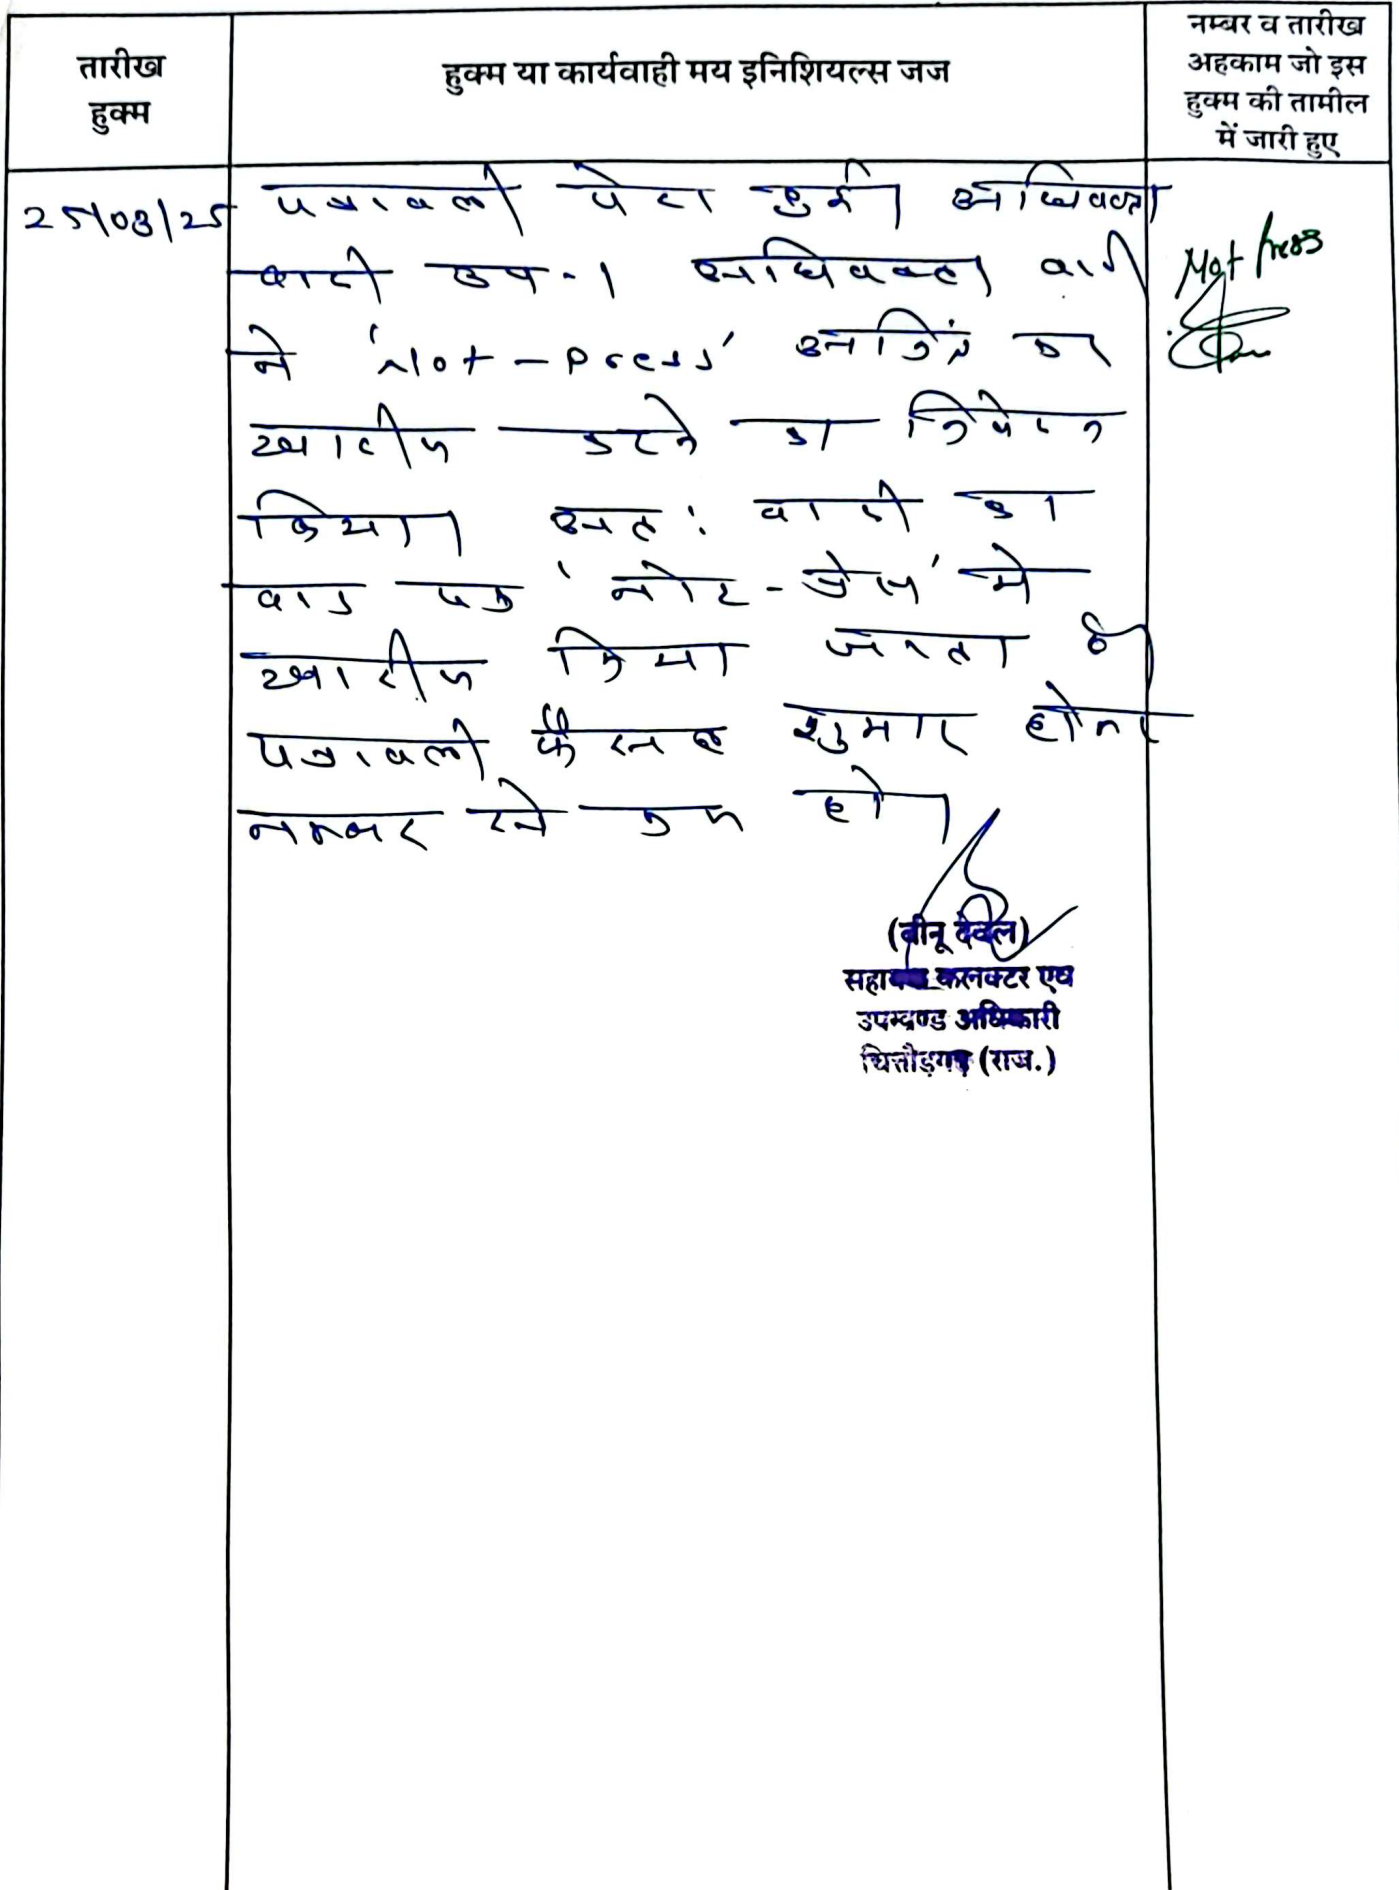 तारीख
हुक्म
हुक्म या कार्यवाही मय इनिशियल्स जज
नम्बर व तारीख
अहकाम जो इस
हुक्म की तामील
में जारी हुए
25/03/25
पत्रावली पेश हुई। अधिवक्ता
वादी उप.। अधिवक्ता वादी
ने 'Not-press' अंकित कर
खारीज करने का निवेदन
किया। अतः वादी का
वाद पत्र 'नोट-प्रेस' मे
खारीज किया जाता है।
पत्रावली फैसल शुमार होकर
नम्बर से कम हो।
Not press
(बीनू देवल)
सहायक कलक्टर एवं
उपखण्ड अधिकारी
चित्तौड़गढ़ (राज.)